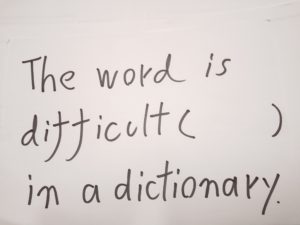 The word is
difficult (      )
in a dictionary.